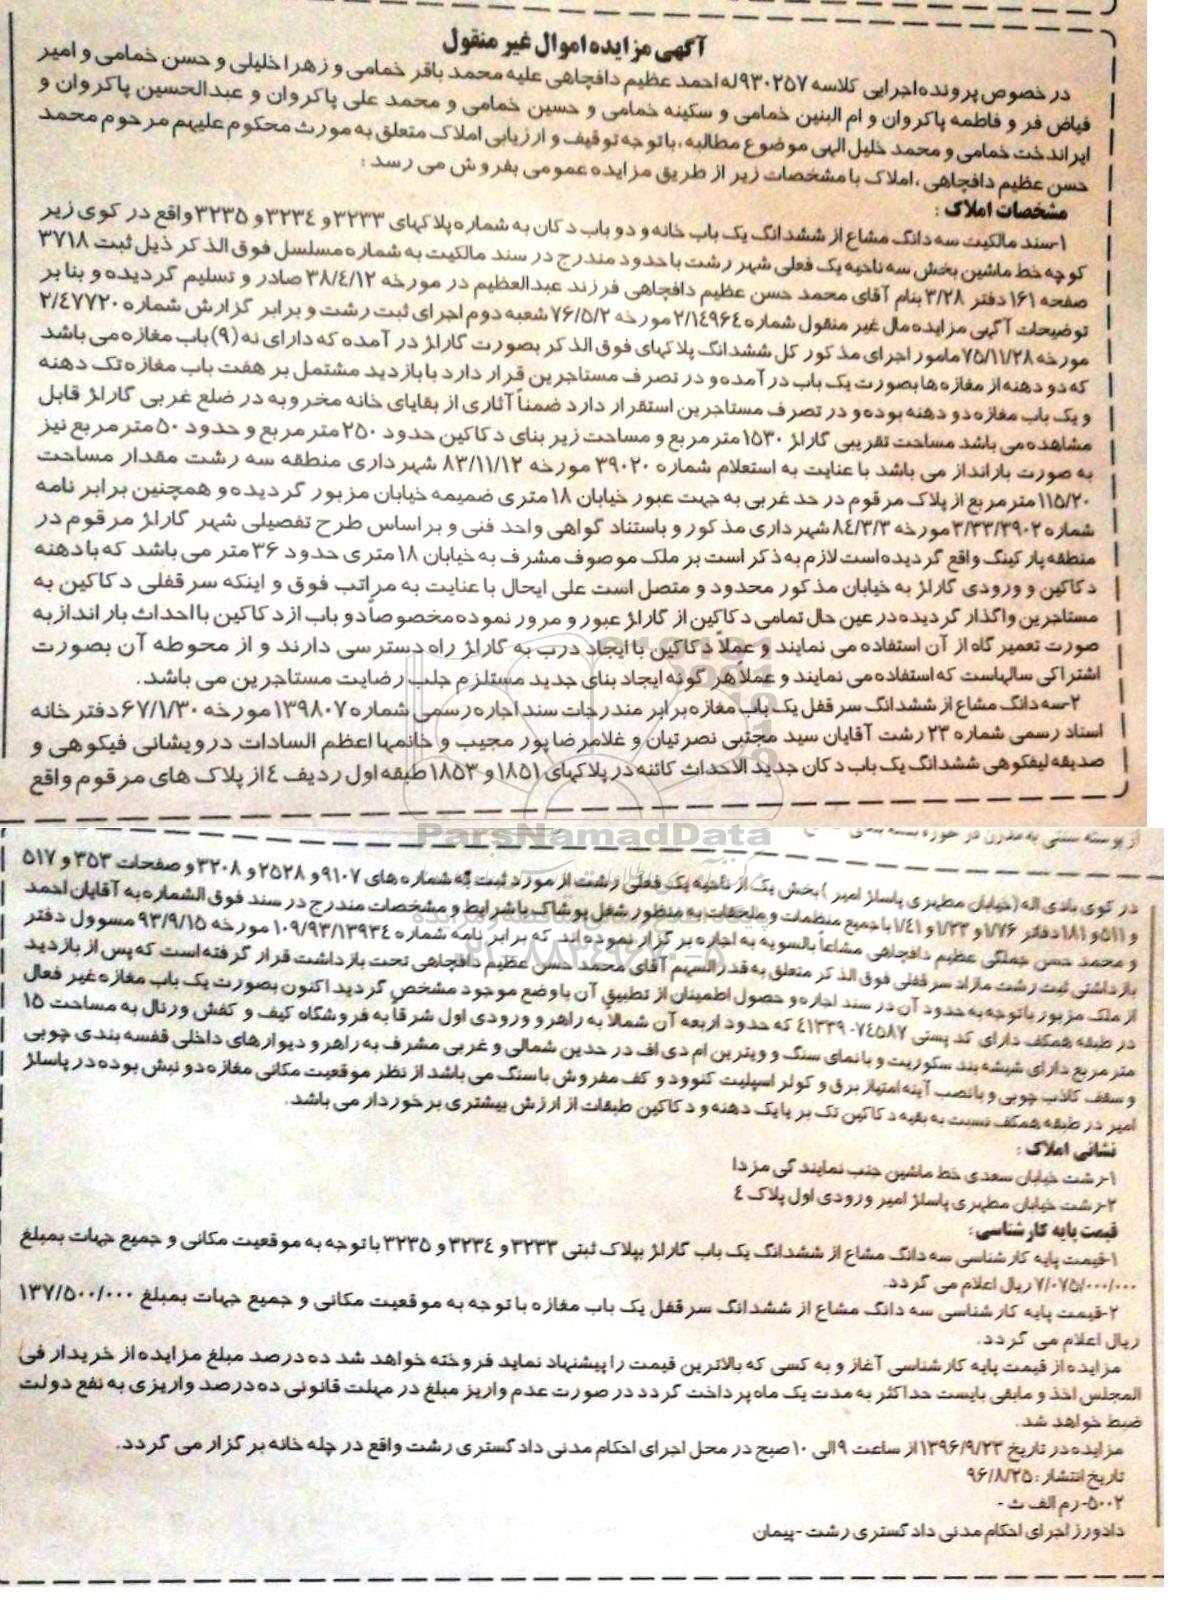 آگهی مزایده اموال غیر منقول
در خصوص پرونده اجرایی کلاسه ۹۳۰۲۵۷ له احمد عظیم دافچاهی علیه محمد باقر خمامی و زهرا خلیلی و حسن خمامی و امیر
فیاض فر و فاطمه پاکروان و ام البنین خمامی و سکینه خمامی و حسین خمامی و محمد علی پاکروان و عبدالحسین پاکروان و
ایراندخت خمامی و محمد خلیل الهی موضوع مطالبه، با توجه توقیف و ارزیابی املاک متعلق به مورث محکوم علیهم مرحوم محمد
حسن عظیم دافچاهی ،املاک با مشخصات زیر از طریق مزایده عمومی بفروش می رسد :
مشخصات املاک :
۱-سند مالکیت سه دانگ مشاع از ششدانگ یک باب خانه و دو باب دکان به شماره پلاکهای ۳۲۳۳ و ۳۲۳۴ و ۳۲۳۵ واقع در کوی زیر
کوچه خط ماشین بخش سه ناحیه یک فعلی شهر رشت با حدود مندرج در سند مالکیت به شماره مسلسل فوق الذکر ذیل ثبت ۳۷۱۸
صفحه ۱۶۱ دفتر ۳/۲۸ بنام آقای محمد حسن عظیم دافچاهی فرزند عبدالعظیم در مورخه ۳۸/۴/۱۲ صادر و تسلیم گردیده و بنا بر
توضیحات آگهی مزایده مال غیر منقول شماره ۲/۱۴۹۶۴ مورخه ۷۶/۵/۲ شعبه دوم اجرای ثبت رشت و برابر گزارش شماره ۲/۴۷۷۲۰
مورخه ۷۵/۱۱/۲۸ مامور اجرای مذکور کل ششدانگ پلاکهای فوق الذکر بصورت گاراژ در آمده که دارای نه (۹) باب مغازه می باشد
که دو دهنه از مغازه ها بصورت یک باب در آمده و در تصرف مستاجرین قرار دارد با بازدید مشتمل بر هفت باب مغازه تک دهنه
و یک باب مغازه دو دهنه بوده و در تصرف مستاجرین استقرار دارد ضمناً آثاری از بقایای خانه مخروبه در ضلع غربی گاراژ قابل
مشاهده می باشد مساحت تقریبی گاراژ ۱۵۳۰ متر مربع و مساحت زیر بنای دکاکین حدود ۲۵۰ متر مربع و حدود ۵۰ متر مربع نیز
به صورت بارانداز می باشد با عنایت به استعلام شماره ۳۹۰۲۰ مورخه ۸۳/۱۱/۱۲ شهرداری منطقه سه رشت مقدار مساحت
۱۱۵/۲۰ متر مربع از پلاک مرقوم در حد غربی به جهت عبور خیابان ۱۸ متری ضمیمه خیابان مزبور گردیده و همچنین برابر نامه
شماره ۳/۳۳/۳۹۰۲ مورخه ۸۴/۳/۳ شهرداری مذکور و باستناد گواهی واحد فنی و بر اساس طرح تفصیلی شهر گاراژ مرقوم در
منطقه پارکینگ واقع گردیده است لازم به ذکر است بر ملک موصوف مشرف به خیابان ۱۸ متری حدود ۳۶ متر می باشد که با دهنه
دکاکین و ورودی گاراژ به خیابان مذکور محدود و متصل است علی ایحال با عنایت به مراتب فوق و اینکه سرقفلی دکاکین به
مستاجرین واگذار گردیده در عین حال تمامی دکاکین از گاراژ عبور و مرور نموده مخصوصاً دو باب از دکاکین با احداث بار انداز به
صورت تعمیر گاه از آن استفاده می نمایند و عملاً دکاکین با ایجاد درب به گاراژ راه دسترسی دارند و از محوطه آن بصورت
اشتراکی سالهاست که استفاده می نمایند و عملاً هر گونه ایجاد بنای جدید مستلزم جلب رضایت مستاجرین می باشد.
۲-سه دانگ مشاع از ششدانگ سرقفل یک باب مغازه برابر مندرجات سند اجاره رسمی شماره ۱۳۹۸۰۷ مورخه ۶۷/۱/۳۰ دفتر خانه
اسناد رسمی شماره ۲۳ رشت آقایان سید مجتبی نصرتیان و غلامرضا پور مجیب و خانمها اعظم السادات درویشانی فیکوهی و
صدیقه لیفکوهی ششدانگ یک باب دکان جدید الاحداث کائنه در پلاکهای ۱۸۵۱ و ۱۸۵۳ طبقه اول ردیف ۴ از پلاک های مرقوم واقع
ParsNamadData
در کوی بادی اله (خیابان مطهری پاساژ امیر ) بخش یک از ناحیه یک فعلی رشت از مورد ثبت به شماره های ۹۱۰۷ و ۲۵۲۸ و ۳۲۰۸ و صفحات ۳۵۳ و ۵۱۷
و ۵۱۱ و ۱۸۱ دفاتر ۱/۷۶ و ۱/۲۳ و ۱/۴۱ با جمیع منضمات و ملحقات به منظور شغل پوشاک با شرایط و مشخصات مندرج در سند فوق الشماره به آقایان احمد
و محمد حسن جملگی عظیم دافچاهی مشاعاً بالسویه به اجاره برگزار نموده اند که برابر نامه شماره ۱۰۹/۹۳/۱۳۹۳۴ مورخه ۹۳/۹/۱۵ مسوول دفتر
بازداشتی ثبت رشت مازاد سرقفلی فوق الذکر متعلق به قدرالسهم آقای محمد حسن عظیم دافچاهی تحت بازداشت قرار گرفته است که پس از بازدید
از ملک مزبور با توجه به حدود آن در سند اجاره و حصول اطمینان از تطبیق آن با وضع موجود مشخص گردید اکنون بصورت یک باب مغازه غیر فعال
در طبقه همکف دارای کد پستی ۷۴۵۸۷-۴۱۳۳۹ که حدود اربعه آن شمالا به راهرو ورودی اول شرقاً به فروشگاه کیف و کفش ورنال به مساحت ۱۵
متر مربع دارای شیشه بند سکوریت و با نمای سنگ و ویترین ام دی اف در حدین شمالی و غربی مشرف به راهرو دیوارهای داخلی قفسه بندی چوبی
و سقف کاذب چوبی و با نصب آینه امتیاز برق و کولر اسپلیت کنوود و کف مفروش با سنگ می باشد از نظر موقعیت مکانی مغازه دو نبش بوده در پاساژ
امیر در طبقه همکف نسبت به بقیه دکاکین تک بر با یک دهنه و دکاکین طبقات از ارزش بیشتری برخوردار می باشد.
نشانی املاک :
۱-رشت خیابان سعدی خط ماشین جنب نمایندگی مزدا
۲-رشت خیابان مطهری پاساژ امیر ورودی اول پلاک ۴
قیمت پایه کارشناسی :
۱-قیمت پایه کارشناسی سه دانگ مشاع از ششدانگ یک باب گاراژ بپلاک ثبتی ۳۲۳۳ و ۳۲۳۴ و ۳۲۳۵ با توجه به موقعیت مکانی و جمیع جهات بمبلغ
۷/۰۷۵/۰۰۰/۰۰۰ ریال اعلام می گردد.
۲-قیمت پایه کارشناسی سه دانگ مشاع از ششدانگ سرقفل یک باب مغازه با توجه به موقعیت مکانی و جمیع جهات بمبلغ ۱۳۷/۵۰۰/۰۰۰
ریال اعلام می گردد.
مزایده از قیمت پایه کارشناسی آغاز و به کسی که بالاترین قیمت را پیشنهاد نماید فروخته خواهد شد ده درصد مبلغ مزایده از خریدار فی
المجلس اخذ و مابقی بایست حداکثر به مدت یک ماه پرداخت گردد در صورت عدم واریز مبلغ در مهلت قانونی ده درصد واریزی به نفع دولت
ضبط خواهد شد.
مزایده در تاریخ ۱۳۹۶/۹/۲۳ از ساعت ۹ الی ۱۰ صبح در محل اجرای احکام مدنی دادگستری رشت واقع در چله خانه برگزار می گردد.
تاریخ انتشار : ۹۶/۸/۲۵
۵۰۰۲-رم الف ث -
دادورز اجرای احکام مدنی دادگستری رشت -پیمان